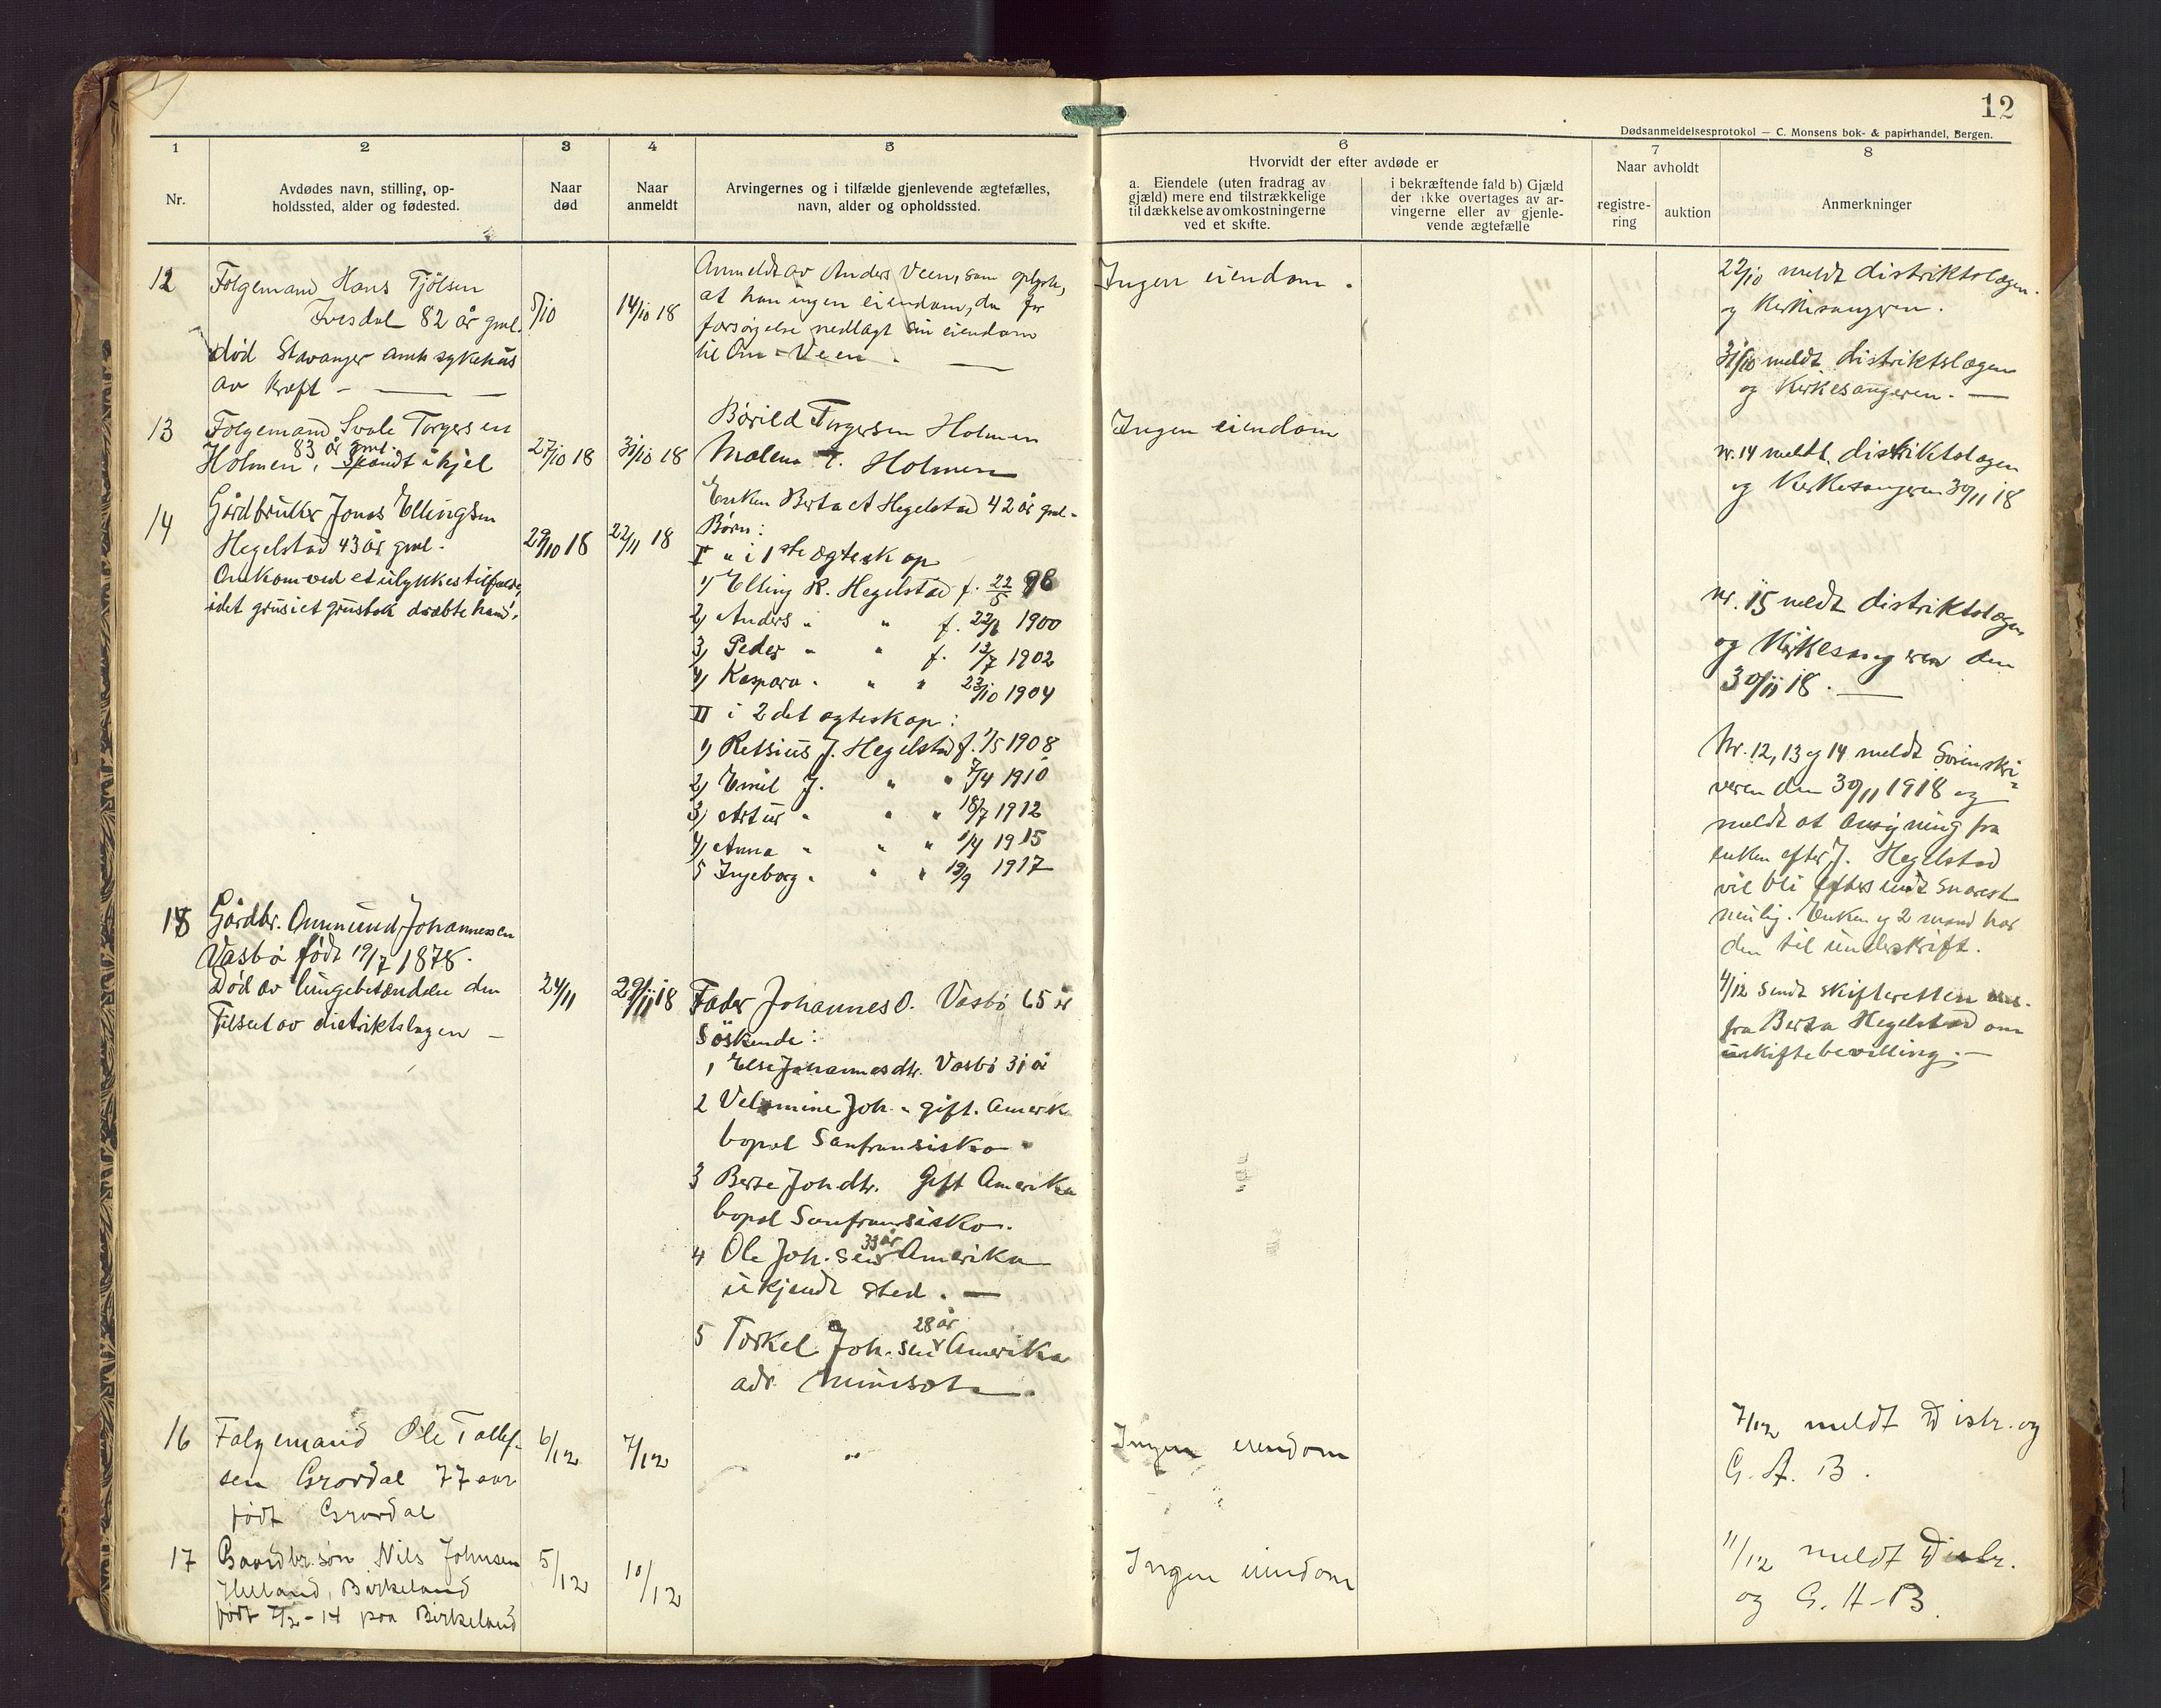 12
Dødsanmeldelsesprotokol — C. Monsens bok- & papirhandel, Bergen.
1
2
3
4
5
6
7
8
Nr.
Avdødes navn, stilling, op-
holdssted, alder og fødested.
Naar
død
Naar
anmeldt
Arvingernes og i tilfælde gjenlevende ægtefælles,
navn, alder og opholdssted.
Hvorvidt der efter avdøde er
a. Eiendele (uten fradrag av
gjæld) mere end tilstrækkelige
til dækkelse av omkostningerne
ved et skifte.
i bekræftende fald b) Gjæld
der ikke overtages av ar-
vingerne eller av gjenle-
vende ægtefælle
Naar avholdt
registre-
ring
auktion
Anmerkninger
12
Følgemand Hans Tjölsen
Ivesdal 82 år gml.
død Stavanger amts sykehus
av kræft —
5/10
14/10 18
Anmeldt av Anders Veen, som oplyste,
at han ingen eiendom, da for
forsørgelse nedlagt sin eiendom
til Om Veen.
Ingen eiendom.
22/10 meldt distriktslægen
og Kirkesangeren.
31/10 meldt distriktslægen
og Kirkesangeren. —
13
Følgemand Svale Torgersen
83 år gml.
Holmen,
27/10 18
31/10 18
Børild Torgersen Holmen
Malena T. Holmen
Ingen eiendom
nr. 14 meldt distriktslægen
og Kirkesangeren 30/11 18
14
Gårdbruker Jonas Ellingsen
Hegelstad 43 år gml.
Omkom ved et ulykkestilfælde,
idet grus i et grustak dræbte ham.
29/10 18
22/11 18
Enken Berta A Hegelstad 42 år gml.
Børn:
I " i 1ste ægteskap
1) Elling R. Hegelstad f. 22/5 98
2) Anders " " f. 22/6 1900
3) Peder " " f. 13/7 1902
4) Kaspara " " " 23/10 1904
II i 2det ægteskap:
1) Retsius J. Hegelstad f. 1/5 1908
2) Emil J. " " 7/4 1910
3) Artur " " " 18/7 1912
4) Anna " " " 1/4 1915
5 Ingeborg " " " 19/9 1917
nr. 15 meldt distriktslægen
og Kirkesangeren den
30/11 18. —
Nr. 12, 13 og 14 meldt Sorenskri-
veren den 30/11 1918 og
meldt at ansøgning fra
enken efter J. Hegelstad
vil bli eftersendt snarest
mulig. Enken og 2 mænd har
den til underskrift.
4/12 sendt skifteretten ans.
fra Berta Hegelstad om
uskiftebevilling. —
15
Gårdbr. Ommund Johannessen
Vasbø født 19/7 1878.
Død av lungebetændelse den
Tilset av distriktslægen —
24/11
29/11 18
Fader Johannes O. Vasbø 65 år
Søskende:
1 Else Johannesdtr. Vasbø 31 år
2 Velomine Joh. " gift. Amerik
bopæl Sanfransisko
3 Berte Joh dtr. Gift Amerika
bopæl Sanfransisko.
33 år
4 Ole Joh. sen Amerika
ukjendt sted. —
28 år
5 Torkel Joh. sen Amerika
adr. Minisota.
16
Følgemand Ole Tollef-
sen Grovdal 77 aar
født Grovdal
6/12
7/12
"
Ingen eiendom
7/12 meldt Distr. og
G. A. B.
17
Gaardbr.søn Nils Johnsen
Helland, Birkeland
født 7/2 - 14 paa Birkeland
5/12
10/12
Ingen eiendom
11/12 meldt Distr.
og G. A. B.